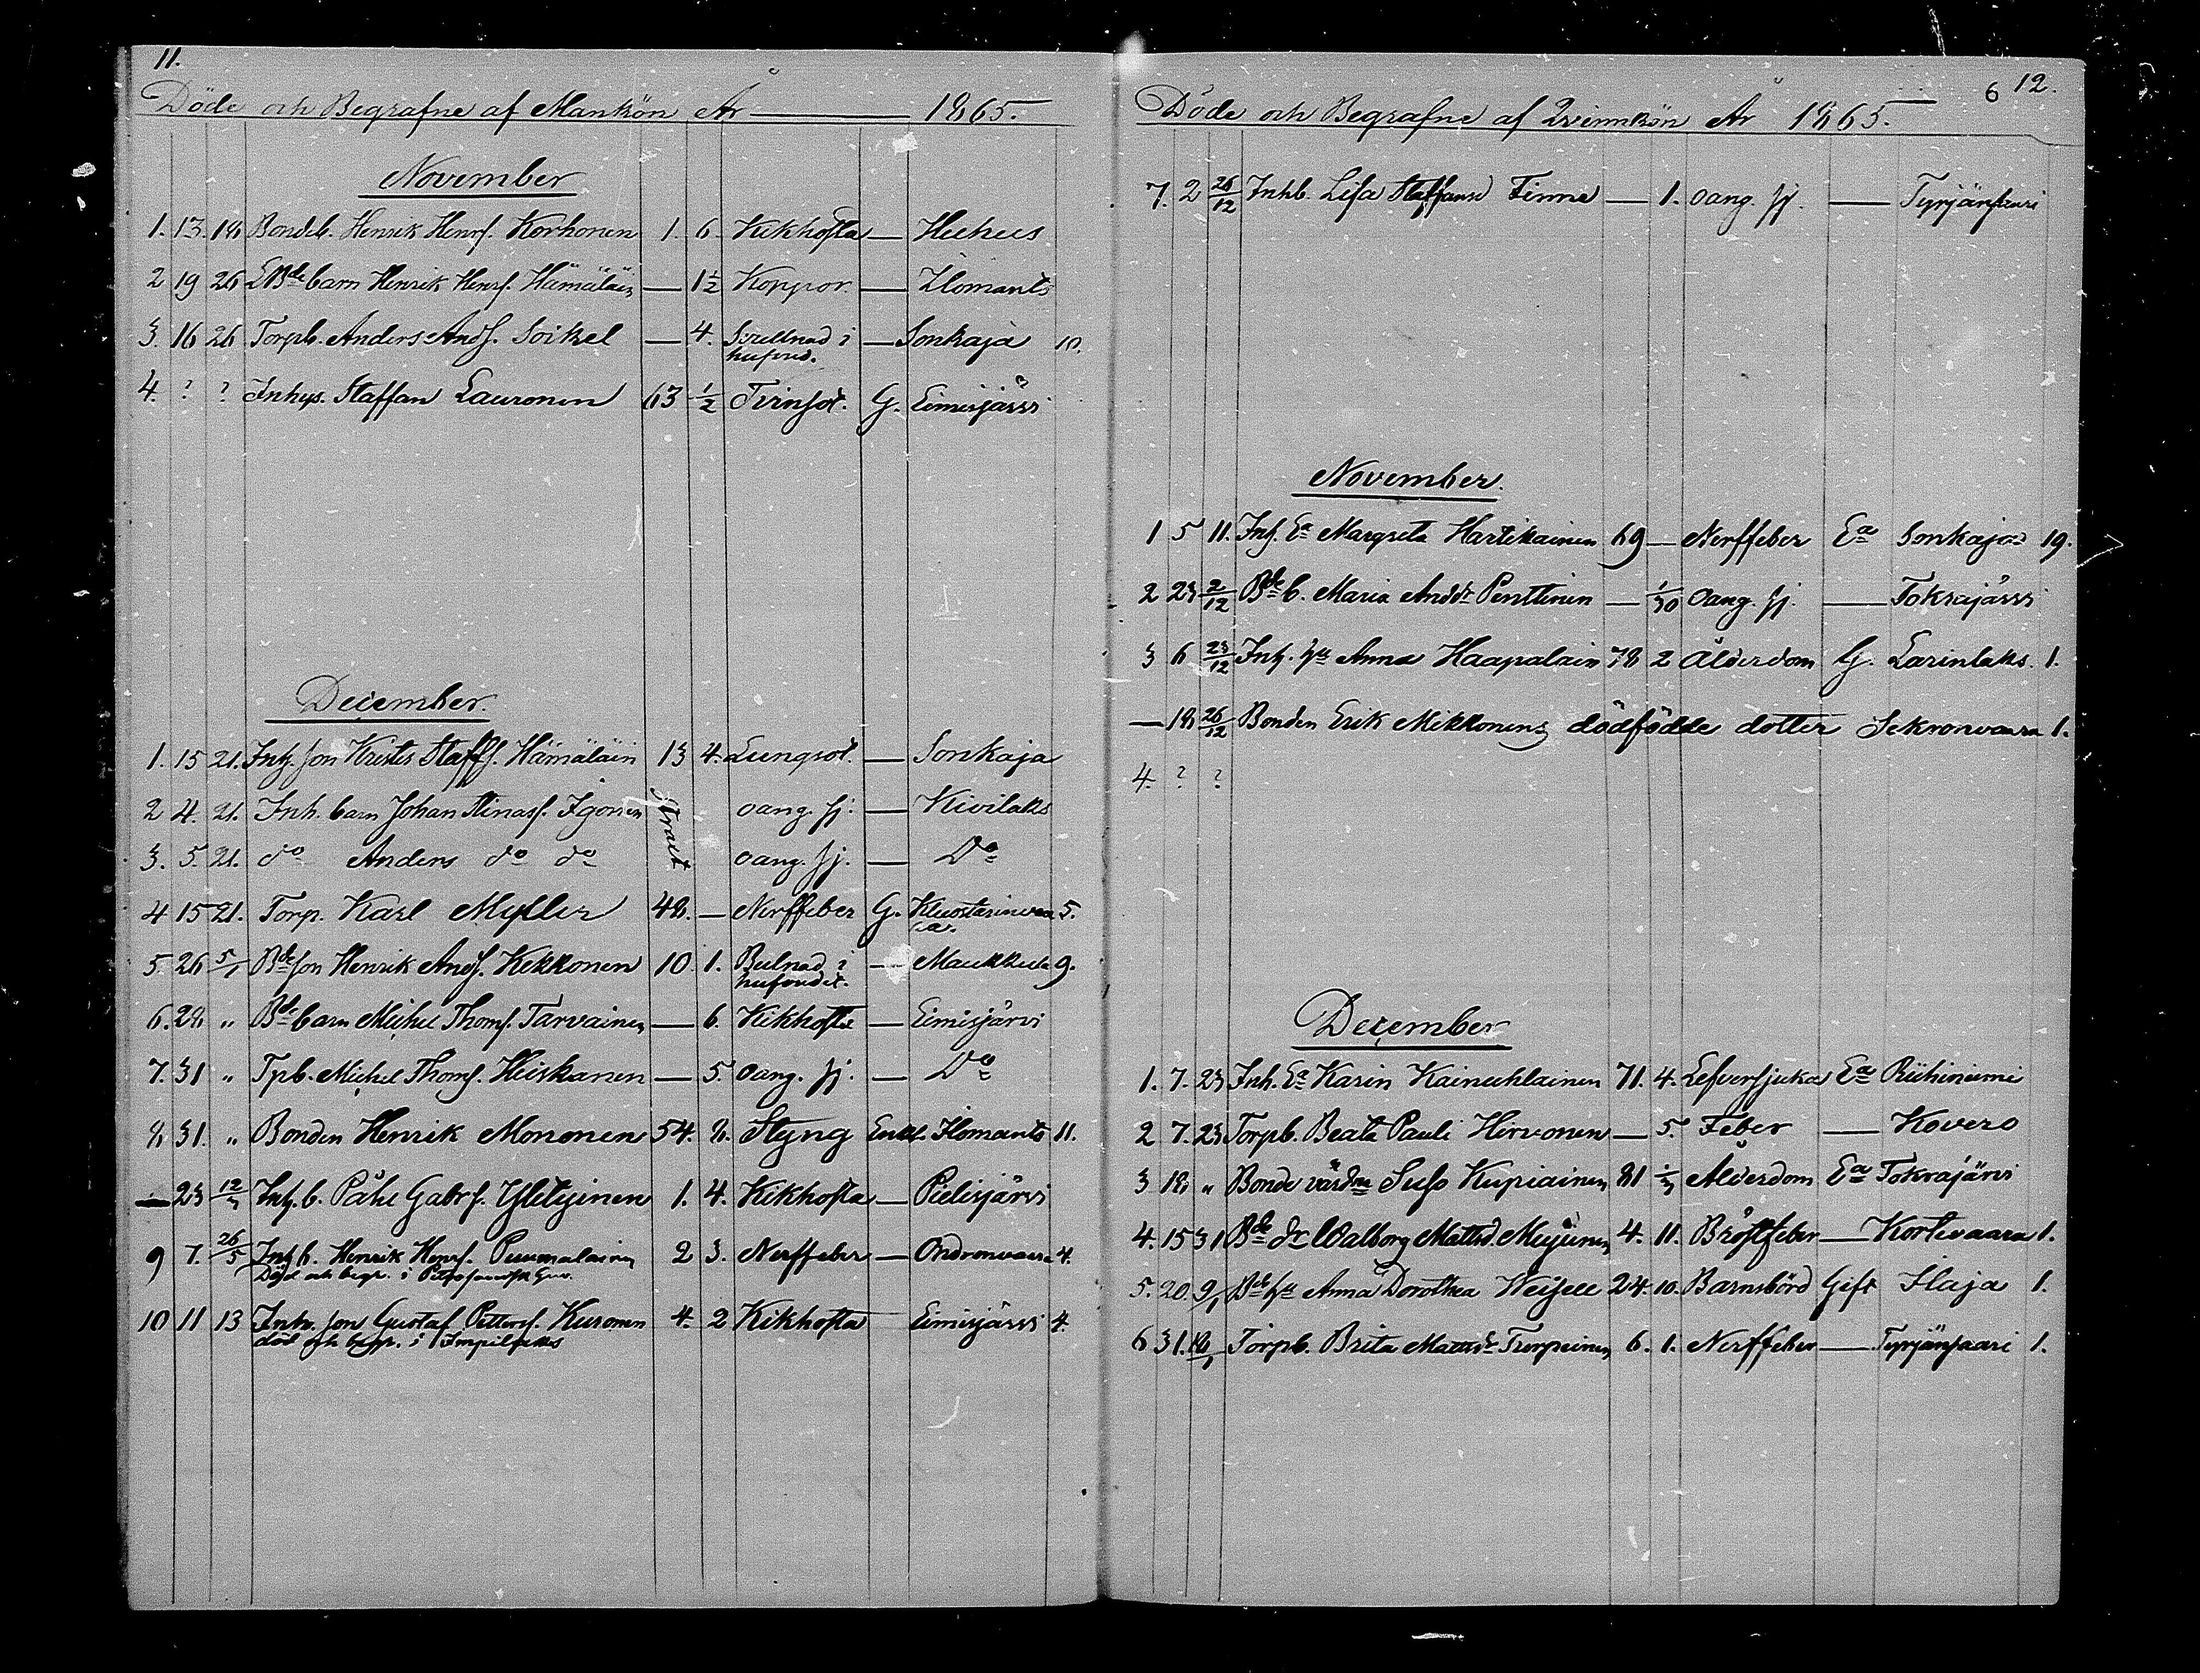 11.
Döde och Begrafne af Mankön År 1865.
November
1. 13. 18 Bondeb. Henrik Henrs. Korhonen 1. 6. Kikhosta — Huhus
2 19 26 E Bde barn Henrik Henrs. Hämäläin — 1 1/2 Koppor. — Ilomants
3. 16 26 Torpb. Anders Ands. Soikel — 4. Svullnad i — Sonkaja 10.
hufvud.
4. ? ? Inhys. Staffan Lauronen 63 1/2 Tvinsot. G. Eimisjärvi
December.
1. 15 21. Inh. son Krister Staffs. Hämäläin 13 4. Lungsot. — Sonkaja
2 4. 21. Inh. barn Johan Stinas. Igonen strax oang. sj. — Kivilaks
3. 5. 21. do Anders do do oang. sj. — Do
4 15 21. Torp. Karl Myller 48. — Nerffeber G. 5.
5. 26 5/1 Bde son Henrik Ands. Kekkonen 10 1. Bulnad i — Maukkula 9.
hufvudet.
6. 28 " Bde barn Michel Thoms. Tarvainen — 6. Kikhosta — Eimisjärvi
7. 31 " Tpb. Michel Thoms. Heiskanen — 5. oang. sj. — Do
8 31. " Bonden Henrik Mononen 54. 8. Styng Enkl. Ilomants 11.
— 23 12/3 Inh. b. Påhl Gabrs. 1. 4. Kikhosta — Pielisjärvi
9 7. 26/5 Inh b. Henrik Henrs. Puumalainen 2 3. Nerffeber — Ondronvaara 4.
Död och begr. i
10 11 13 Inh. son Gustaf Petters. Kuronen 4. 2 Kikhosta Eimisjärvi 4.
död och begr. i Impilaks
6 12.
Döde och Begrafne af Qvinnkön År 1865.
7. 2 26/12 Inhb. Lisa Staffansd Tinna — 1. oang. sj. — Tyrjänsaari
November.
1 5 11. Inh. Ea Margreta Hartikainen 69 — Nerffeber Ea Sonkaja 19.
2 23 2/12 Bde b. Maria Anddr Penttinen — 1/30 Oang. sj. — Tokrajärvi
3 6 23/12 Inh. hu Anna Haapalain 78 2 Ålderdom G. Larinlaks. 1.
— 18 26/12 Bonden Erik Mikkonens dödfödde dotter Sekronvaara 1.
4. ? ?
December
1. 7. 23 Inh. Ea Karin Kainuhlainen 71. 4. Lefversjuka Ea Riihiniemi
2 7. 23 Torpb. Beata Pauli Hirvonen — 5. Feber — Kovero
3 18 " Bonde värdna Susa Kupiainen 81 Ålderdom Ea Tokrajärvi
4. 15 31 Bde dr Walborg Mattsd. 4. 11. Bröstfeber — Kortevaara 1.
5. 20. 9/1 Bde hu Anna Dorothea 24. 10. Barnsbörd Gift Ilaja 1.
6 31. Torpb. Brita Mattsdr Turpeinen 6. 1. Nerffeber — Tyrjänsaari 1.